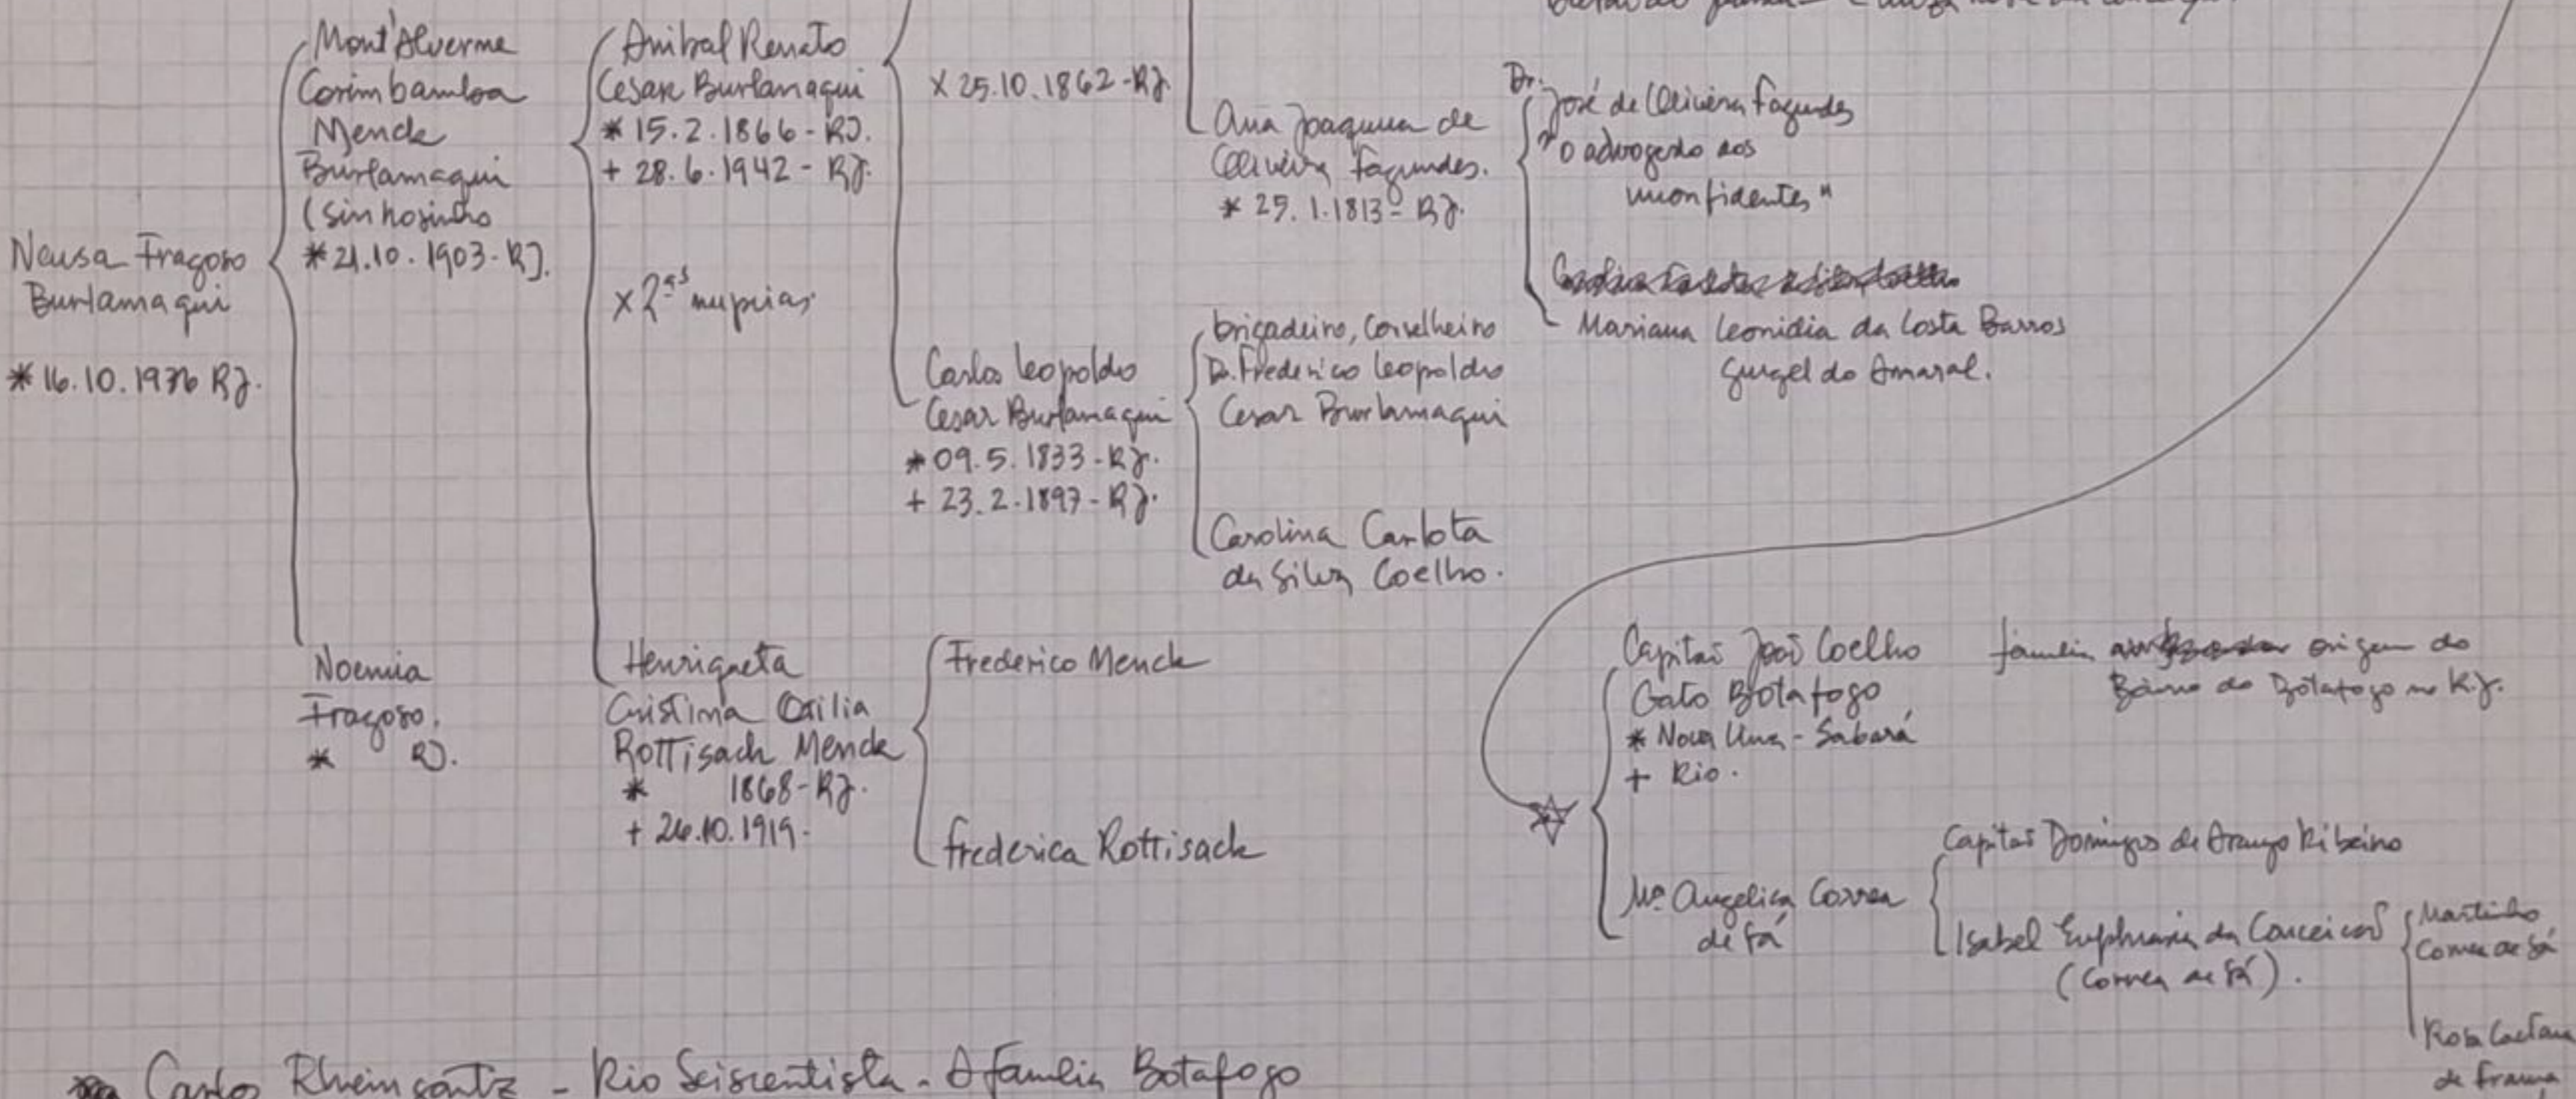 Neusa Fragoso
Burlamaqui
* 16.10.1936 RJ.
Mont'Alverme
Corimbamloa
Menck
Burlamaqui
(Sinhosinho
* 21.10.1903-RJ.
Noemia
Fragoso.
* RJ.
Anibal Renato
Cesar Burlamaqui
* 15.2.1866 - RJ.
+ 28.6.1942 - RJ.
x 2ªs nupcias
Henriqueta
Cristina Otilia
Rottisack Menck
* 1868-RJ.
+ 26.10.1919.
x 25.10.1862-RJ.
Carlos Leopoldo
Cesar Burlamaqui
* 09.5.1833-RJ.
+ 23.2.1897-RJ.
Frederico Menck
Frederica Rottisack
Ana Joaquina de
Oliveira Fagundes.
* 25.1.1813-RJ.
brigadeiro, Conselheiro
Dr. Frederico Leopoldo
Cesar Burlamaqui
Carolina Carlota
da Silva Coelho.
Dr.
José de Oliveira Fagundes
"o advogado dos
inconfidentes"
Mariana Leonidia da Costa Barros
Gurgel do Amaral.
Capitão João Coelho
Gato Botafogo
* Nova - Sabará
+ Rio.
família origem do
Bairro do Botafogo no R.J.
Mª Angelica Correa
de Sá
Capitão Domingos de Araujo Ribeiro
Isabel Euphrasia da Conceicao
(Correa de Sá).
Martinho
Correa de Sá
Rosa Caetana
de França
Carlos Rheingantz - Rio Seiscentista - A família Botafogo